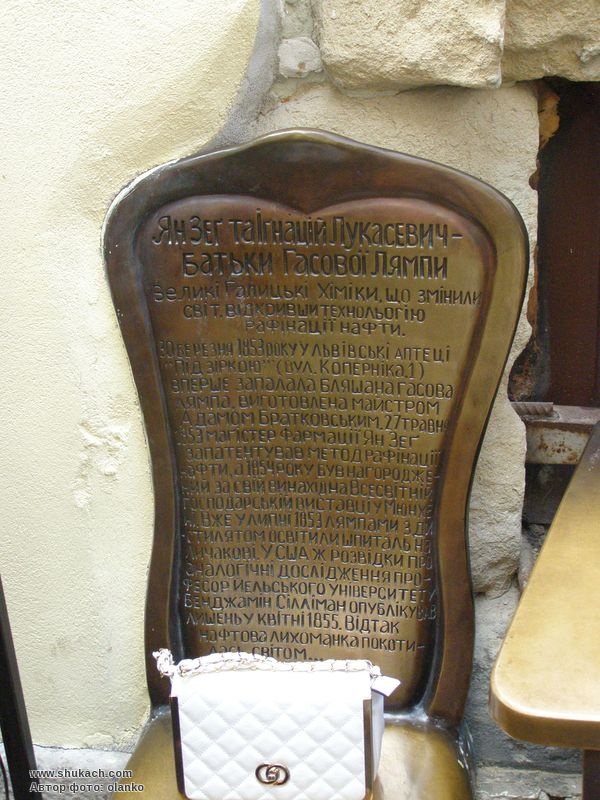 Ян Зеґ та Ігнацій Лукасевич –
Батьки Гасової Лямпи
Великі Галицькі Хіміки, що змінили
світ, відкривши технольогію
рафінації нафти.
30 березня 1853 року у львівські аптеці
"Під зіркою" (вул. Коперніка, 1)
вперше запалала бляшана гасова
лямпа, виготовлена майстром
Адамом Братковським. 27 травня
1853 магістер фармації Ян Зеґ
запатентував метод рафінації
нафти, а 1854 року був нагородже-
ний за свій винахід на Всесвітній
господарській виставці у Мюнхе-
ні. Вже у липні 1853 лямпами з ди-
стилятом освітили шпиталь на
Личакові. У США ж розвідки про
аналогічні дослідження про-
фесор Йельського університету
Бенджамін Сілліман опублікував
лишень у квітні 1855. Відтак
нафтова лихоманка покоти-
лась світом
www.shukach.com
Автор фото: olanko